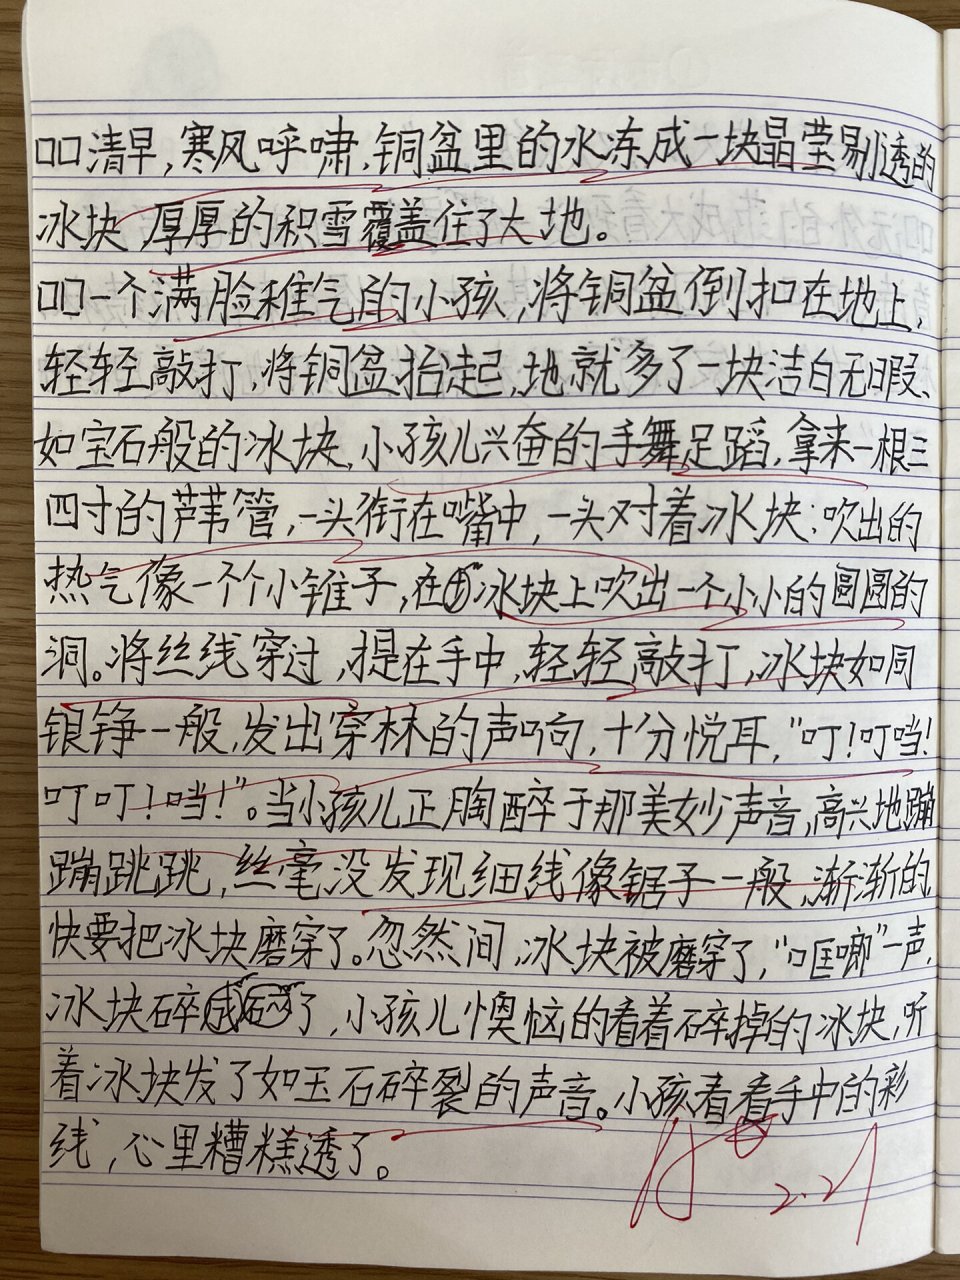 口口清早,寒风呼啸,铜盆里的水冻成一块晶莹剔透的
冰块,厚厚的积雪覆盖住了大地。
口口一个满脸稚气的小孩,将铜盆倒扣在地上,
轻轻敲打,将铜盆抬起,地就多了一块洁白无暇、
如宝石般的冰块,小孩儿兴奋的手舞足蹈,拿来一根三
四寸的芦苇管,一头衔在嘴中,一头对着冰块:吹出的
热气像一个个小锥子,在冰块上吹出一个小小的圆圆的
洞。将丝线穿过,提在手中,轻轻敲打,冰块如同
银铮一般,发出穿林的声响,十分悦耳,“叮!叮当!
叮叮!当!”。当小孩儿正陶醉于那美妙声音,高兴地蹦
蹦跳跳,丝毫没发现细线像锯子一般,渐渐的
快要把冰块磨穿了。忽然间,冰块被磨穿了,“哐啷”一声,
冰块碎了,小孩儿懊恼的看着碎掉的冰块,听
着冰块发了如玉石碎裂的声音。小孩看看手中的彩
线,心里糟糕透了。
2.21